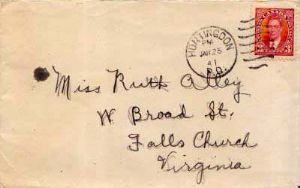 HUNTINGDON
PM
25
41
P.Q.
CANADA
3
Miss Ruth Alley
W. Broad St.
Falls Church
Virginia